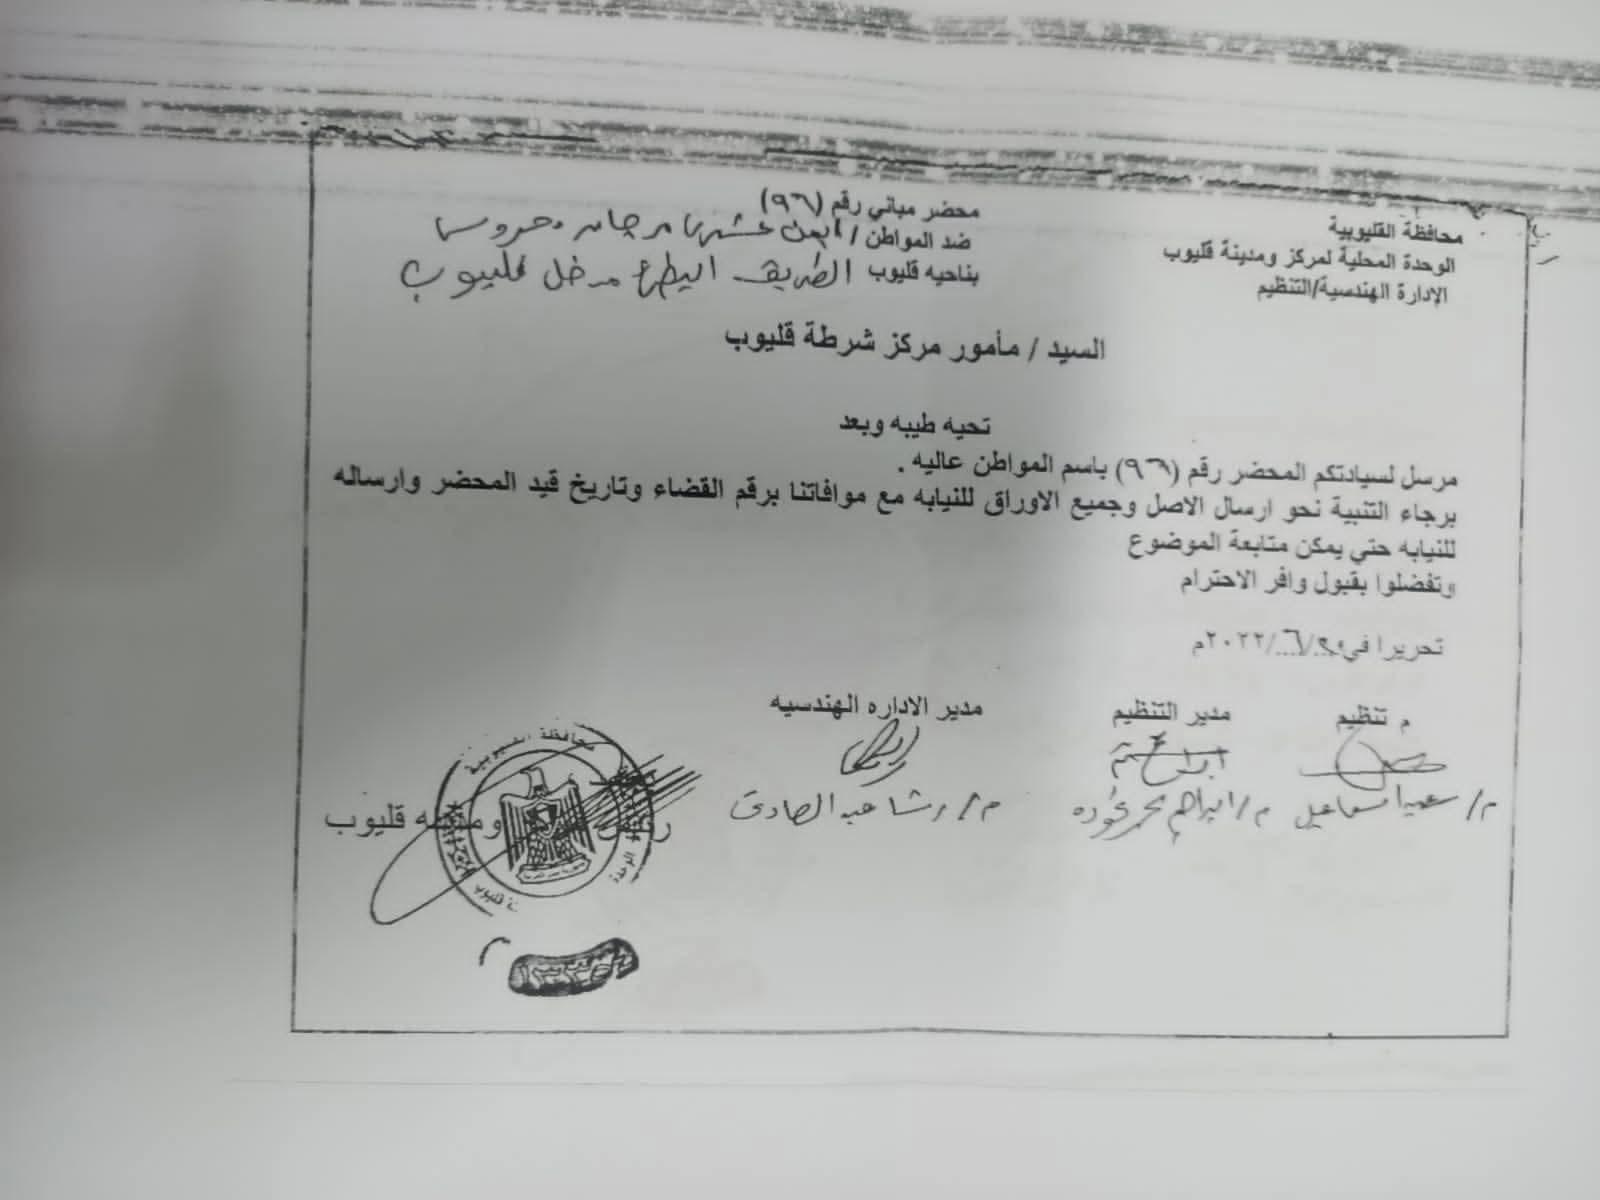 محافظة القليوبية
الوحدة المحلية لمركز ومدينة قليوب
الإدارة الهندسية/التنظيم
محضر مباني رقم (٩٦)
ضد المواطن / ايمن
بناحيه قليوب الطريق مدخل قليوب
السيد / مأمور مركز شرطة قليوب
تحيه طيبه وبعد
مرسل لسيادتكم المحضر رقم (٩٦) باسم المواطن عاليه .
برجاء التنبية نحو ارسال الاصل وجميع الاوراق للنيابه مع موافاتنا برقم القضاء وتاريخ قيد المحضر وارساله
للنيابه حتي يمكن متابعة الموضوع
وتفضلوا بقبول وافر الاحترام
تحريرا في /٦/٢٠٢٢م
م تنظيم
مدير التنظيم
مدير الاداره الهندسيه
م/ اسماعيل
م/ ابراهيم محمد
م/ رشا عبد الصادق
ومدينه قليوب
محافظة القليوبية